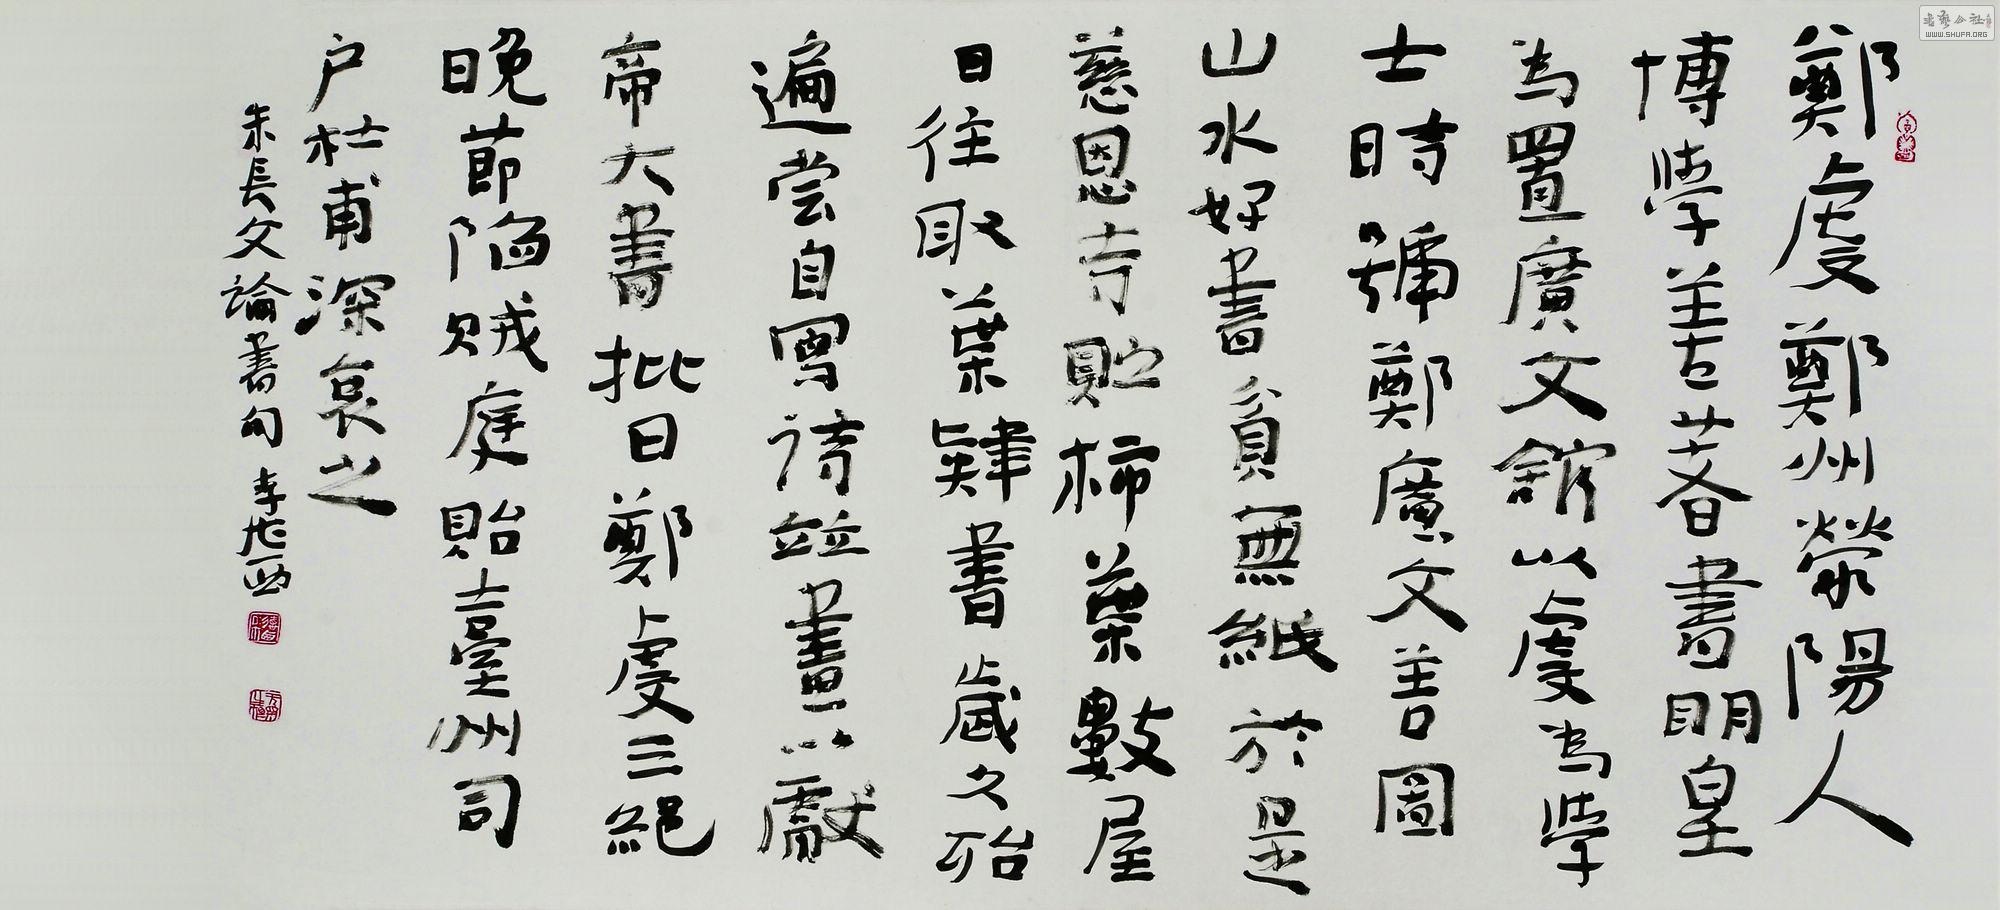 鄭虔鄭州滎陽人
博學善著書明皇
為置廣文館以虔為學
士時號鄭廣文善圖
山水好書貧無紙於是
慈恩寺貯柿葉數屋
日往取葉肄書歲久殆
遍嘗自寫詩並畫以獻
帝大書批曰鄭虔三絕
晚節陷賊庭貽臺州司
户杜甫深哀之
朱長文論書句 李
书艺公社
WWW.SHUFA.ORG